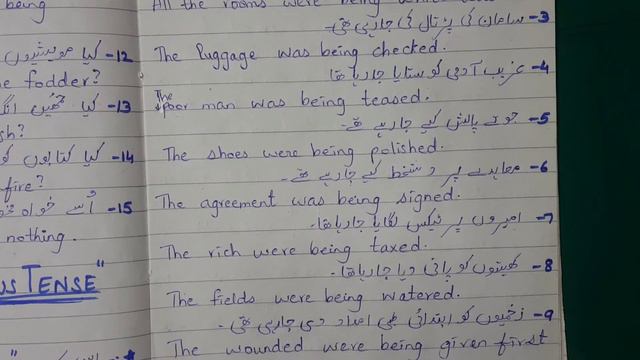 being
12- کیا مویشیوں
the fodder?
13- کیا تمہیں
sh?
14- کیا کتابوں کو
fire?
15- اُسے خواہ مخواہ
nothing.
US TENSE"
All the rooms were being
3- سامان کی پڑتال کی جا رہی تھی۔
The luggage was being checked.
4- غریب آدمی کو ستایا جا رہا تھا
The poor man was being teased.
5- جوتے پالش کیے جا رہے تھے۔
The shoes were being polished.
6- معاہدے پر دستخط کیے جا رہے تھے۔
The agreement was being signed.
7- امیروں پر ٹیکس لگایا جا رہا تھا۔
The rich were being taxed.
8- کھیتوں کو پانی دیا جا رہا تھا۔
The fields were being watered.
9- زخمیوں کو ابتدائی طبی امداد دی جا رہی تھی۔
The wounded were being given first